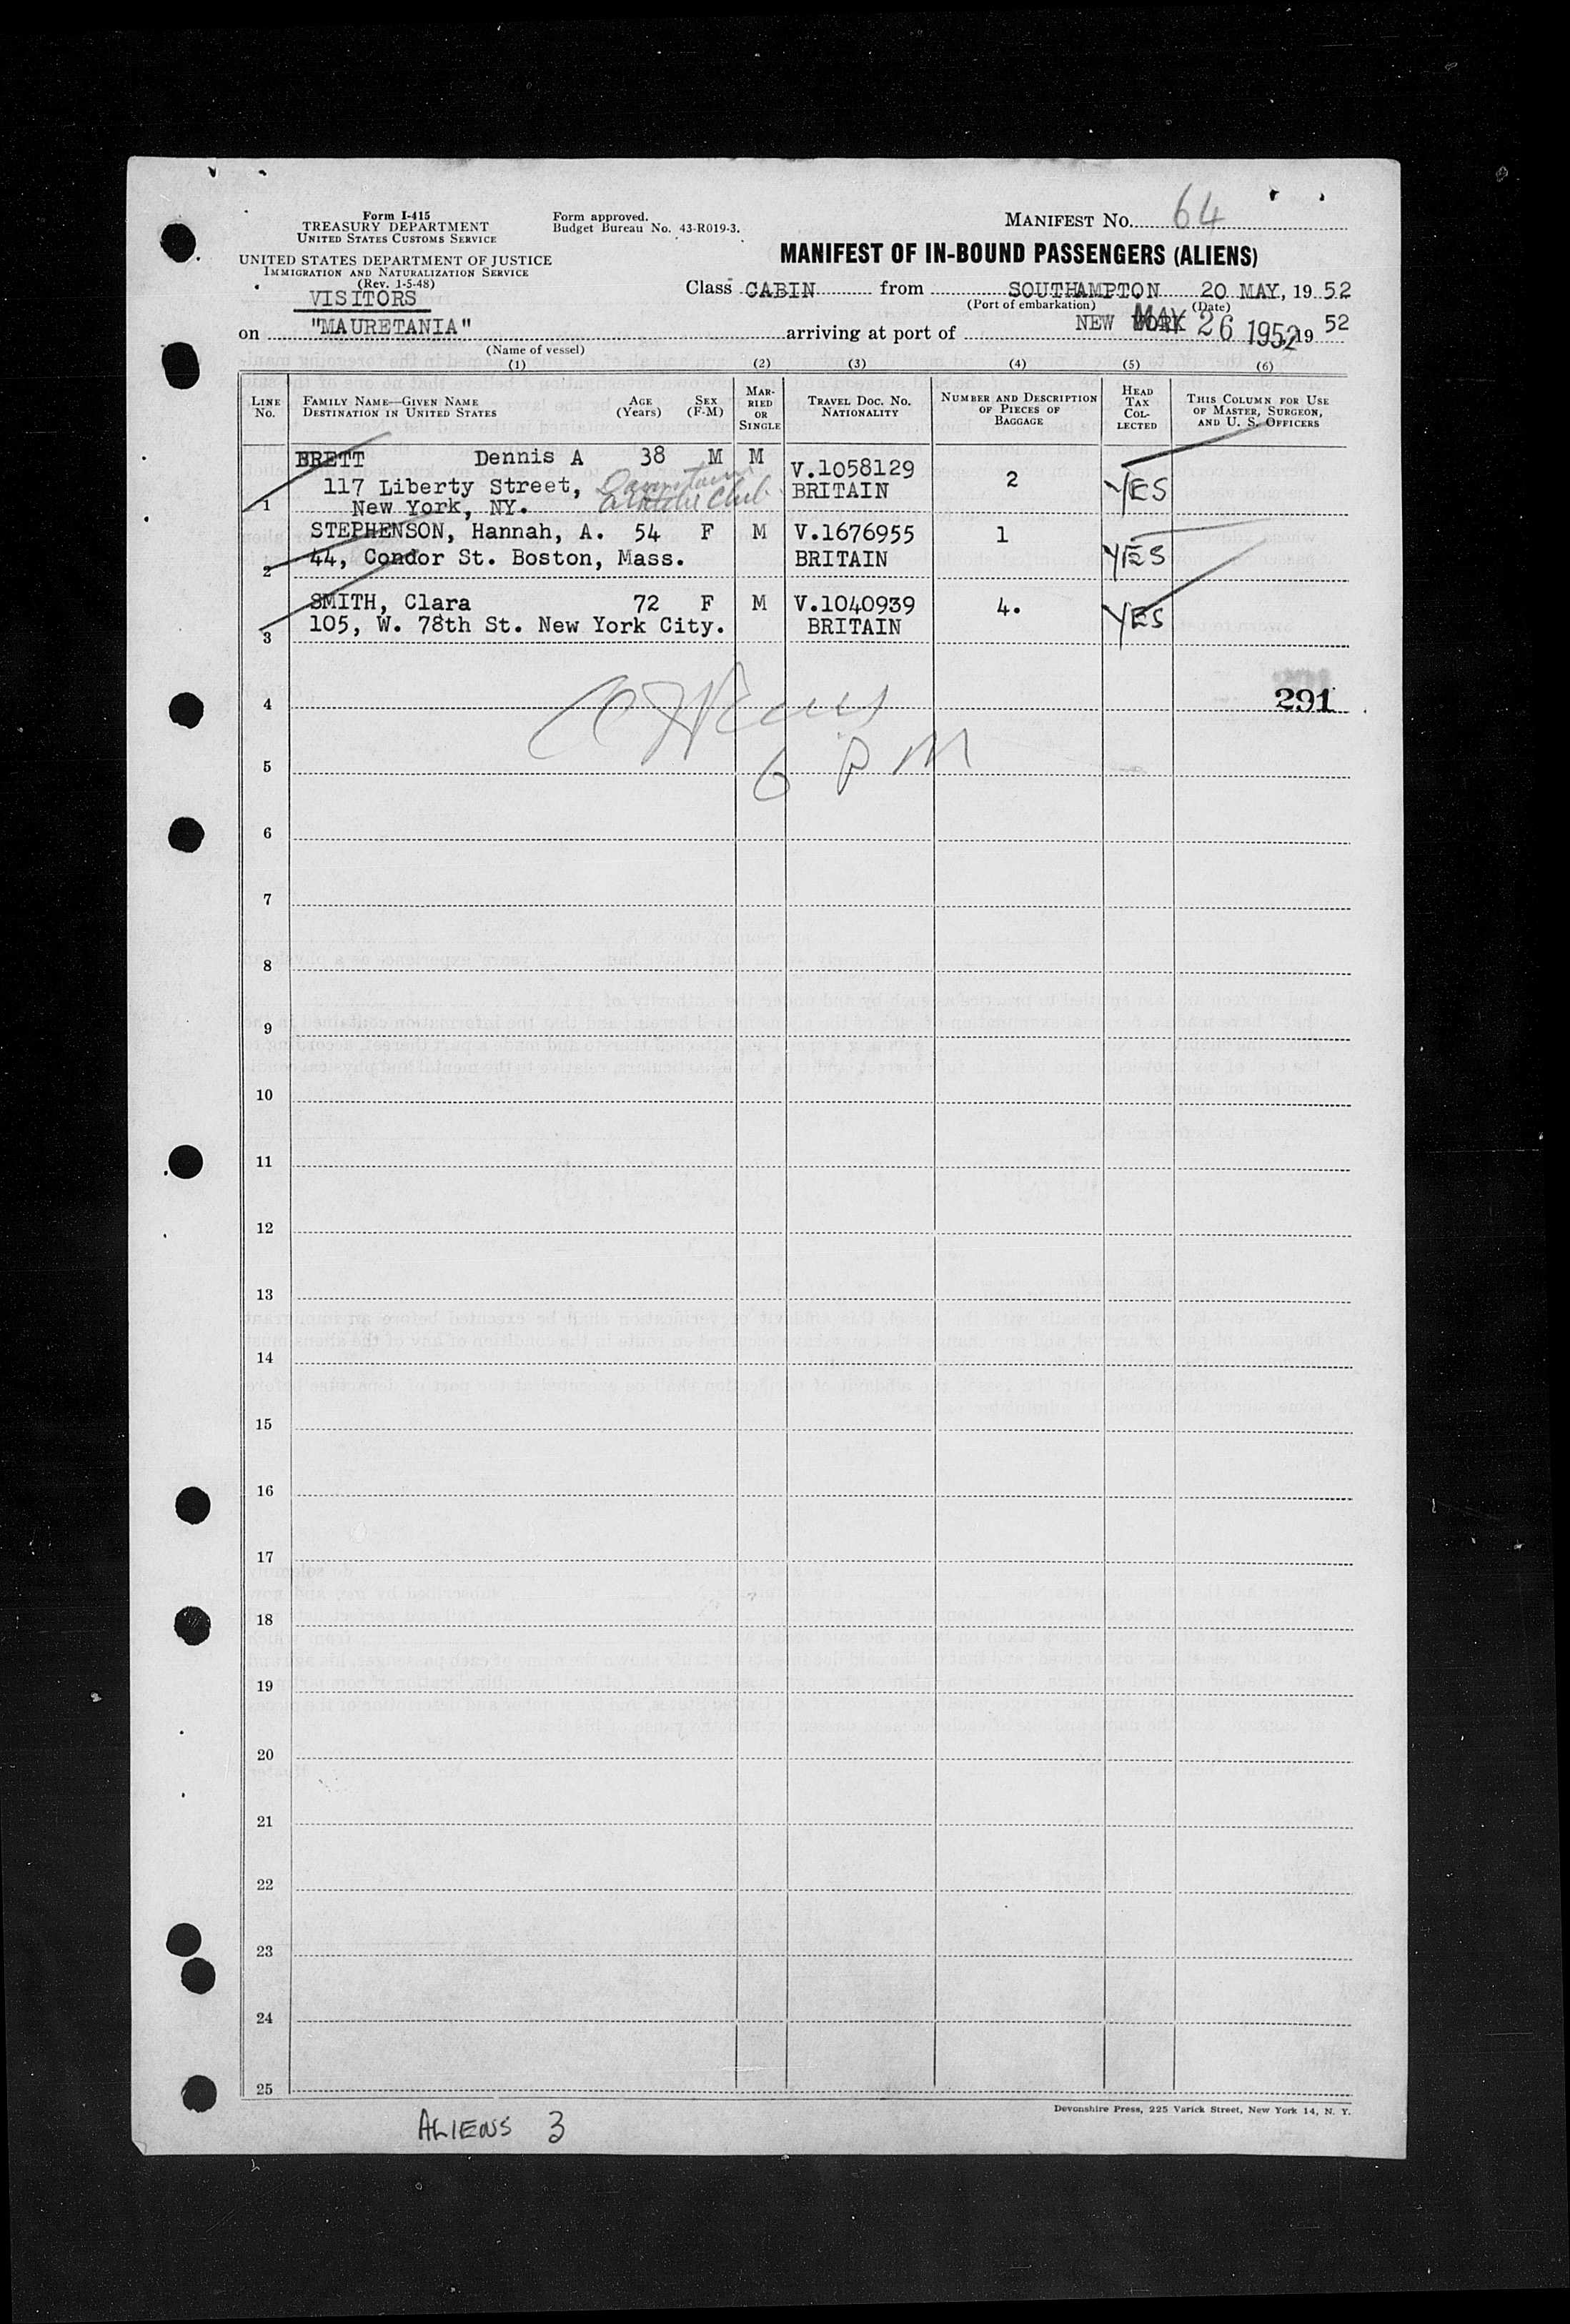 Form I-415
TREASURY DEPARTMENT
UNITED STATES CUSTOMS SERVICE
UNITED STATES DEPARTMENT OF JUSTICE
IMMIGRATION AND NATURALIZATION SERVICE
(Rev. 1-5-48)
VISITORS
Form approved.
Budget Bureau No. 43-R019-3.
MANIFEST NO. 64
MANIFEST OF IN-BOUND PASSENGERS (ALIENS)
Class CABIN from SOUTHAMPTON 20 MAY, 19 52
(Port of embarkation) (Date)
on "MAURETANIA" arriving at port of NEW YORK MAY 26 1952 19 52
(Name of vessel)
(1) (2) (3) (4) (5) (6)
LINE No. FAMILY NAME—GIVEN NAME DESTINATION IN UNITED STATES AGE (Years) SEX (F-M) MARRIED OR SINGLE TRAVEL DOC. NO. NATIONALITY NUMBER AND DESCRIPTION OF PIECES OF BAGGAGE HEAD TAX COLLECTED THIS COLUMN FOR USE OF MASTER, SURGEON, AND U. S. OFFICERS
BRETT Dennis A 38 M M V.1058129 2 YES
117 Liberty Street, Downtown Athletic Club BRITAIN
1 New York, NY.
STEPHENSON, Hannah, A. 54 F M V.1676955 1 YES
2 44, Condor St. Boston, Mass. BRITAIN
SMITH, Clara 72 F M V.1040939 4. YES
3 105, W. 78th St. New York City. BRITAIN
4 291
6 PM
5
6
7
8
9
10
11
12
13
14
15
16
17
18
19
20
21
22
23
24
25
Devonshire Press, 225 Varick Street, New York 14, N. Y.
ALIENS 3